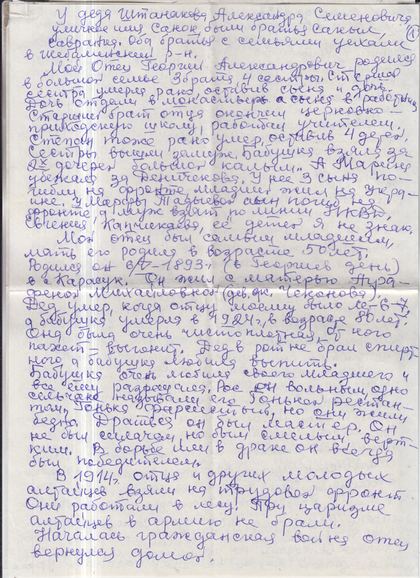 У деда Штанакова Александра Семеновича
уличное имя Санок, были братья Сакыл,
①
Саврандий. Оба брата с семьями уехали
в Шебалинский р-н.
Мой Отец Георгий Александрович родился
в большой семье 3 брата, 4 сестры. Старшая
сестра умерла рано, оставив сына и дочь.
Дочь отдали в монастырь а сына в работники
Старший брат отца окончил церковно-
приходскую школу, работал учителем
Степан тоже рано умер, оставив 4 детей
Сестры вышли замуж. Бабушка взяла за
2х дочерей большой калым. А Марена
убежала за Деничекова. У нее 3 сына по-
гибли на фронте, младший жил на Укра-
ине. У Марфы Тадыевой сын погиб на
фронте, а муж взят по линии НКВД.
Евгения Капчикаева, ее детей я не знаю.
Мой отец был самым младшим,
мать его родила в возрасте 50 лет
Родился он 6/V-1893г. (Георгиев день)
в с. Карасук. Он жил с матерью
Михайловной (дев. фам. Чеконова).
Дед умер, когда отцу моему было 6-7,
а бабушка умерла в 192 г, в возрасте 80 лет.
Она была очень чистоплотная, от кого
пахнет - выгонит. Дед в рот не брал спирт-
ного а бабушка любила выпить.
Бабушка очень любила своего младшего и
все ему разрешала. Рос он вольным, одно-
сельчане называли его Гонькой рестан-
том, Гонька фарсшенный, но они жили
бедно. Драться он был мастер. Он
не был силачом, но был смелым, верт-
ким. В борьбе или в драке он всегда
был победителем.
В 1914г. отца и других молодых
алтайцев взяли на трудовой фронт
Они работали в лесу. При царизме
алтайцев в армию не брали.
Началась гражданская война отец
вернулся домой.